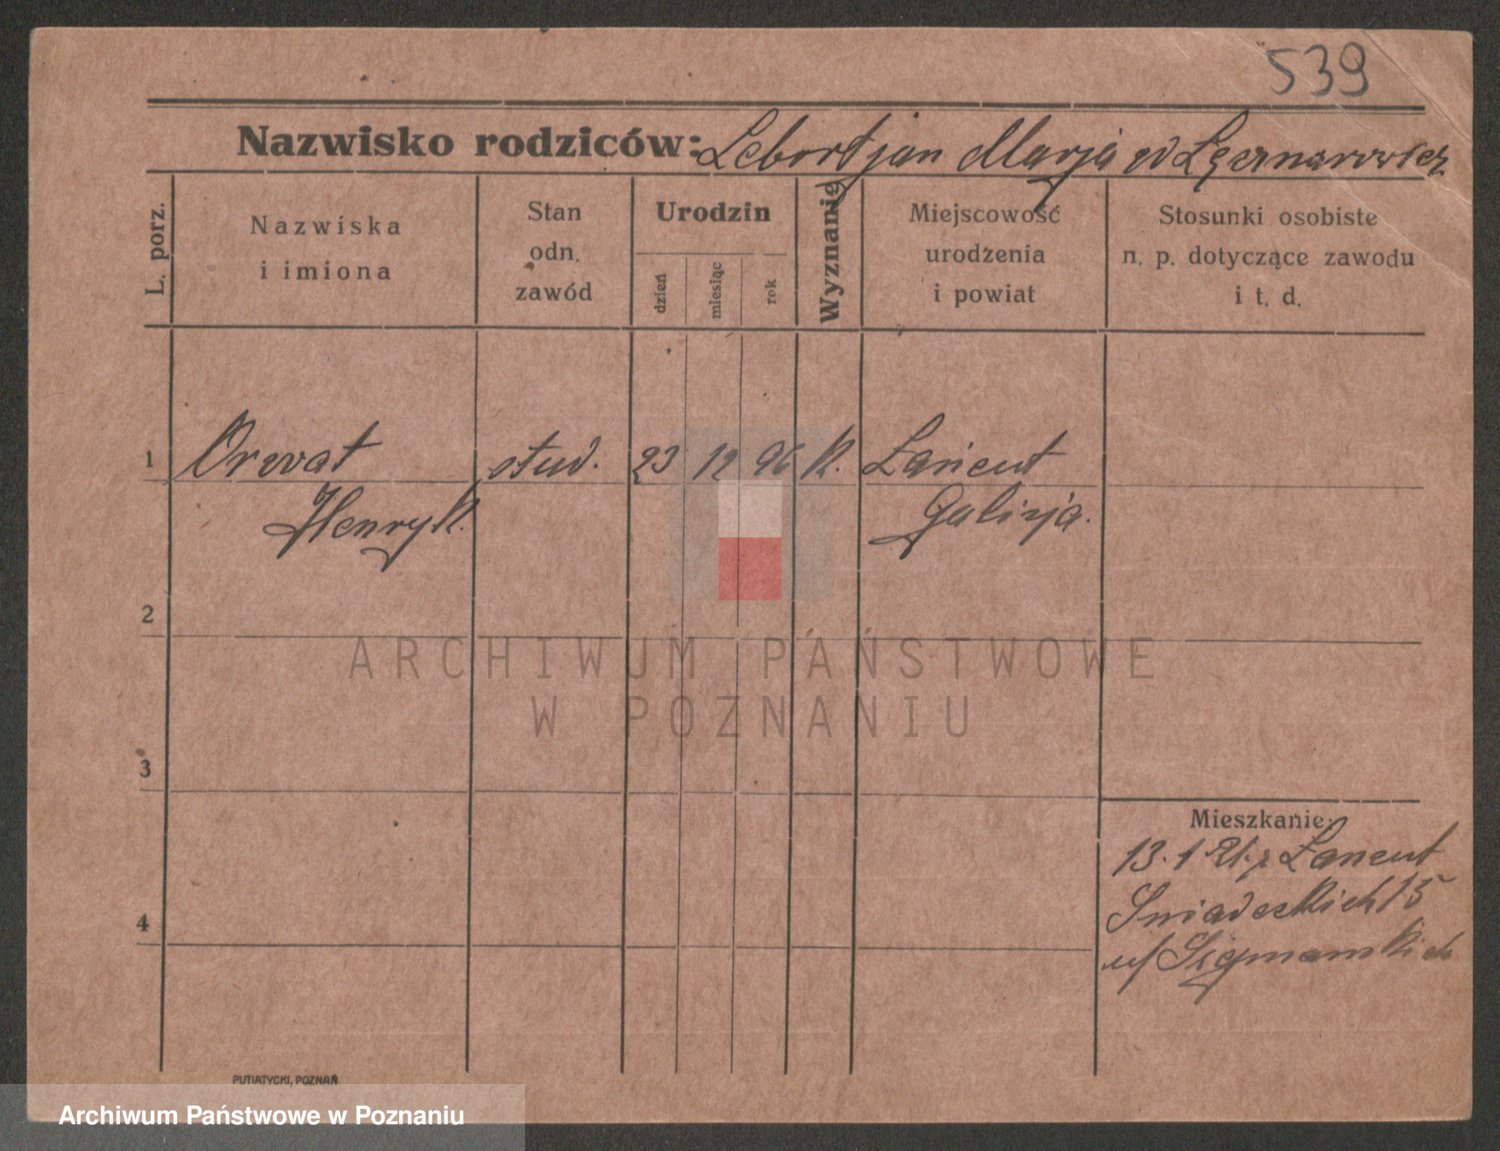 539
Nazwisko rodziców: Marja
L. porz.
Nazwiska i imiona
Stan odn. zawód
Urodzin
dzień
miesiąc
rok
Wyznanie
Miejscowość urodzenia i powiat
Stosunki osobiste n. p. dotyczące zawodu i t. d.
1 Orwat stud. 23 12 96 k. Łańcut
Henryk. Galizja.
2
ARCHIWUM PAŃSTWOWE
W POZNANIU
3
Mieszkanie:
13. 1 21. z Łancut
4 Sniadeckich 15
PUTIATYCKI, POZNAŃ
Archiwum Państwowe w Poznaniu